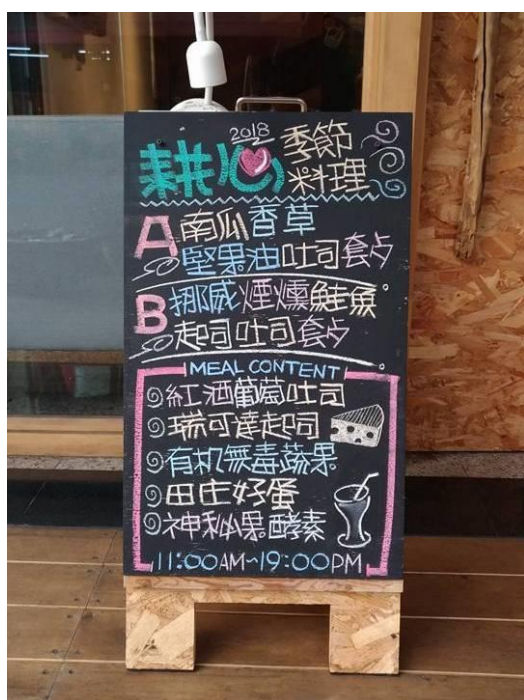 2018
耕心 季節料理
A 南瓜香草
堅果油吐司套夕
B 挪威煙燻鮭魚
起司吐司套夕
MEAL CONTENT
紅酒葡萄吐司
瑞可達起司
有机無毒蔬果
田庄好蛋
神秘果酵素
11:00AM~19:00PM